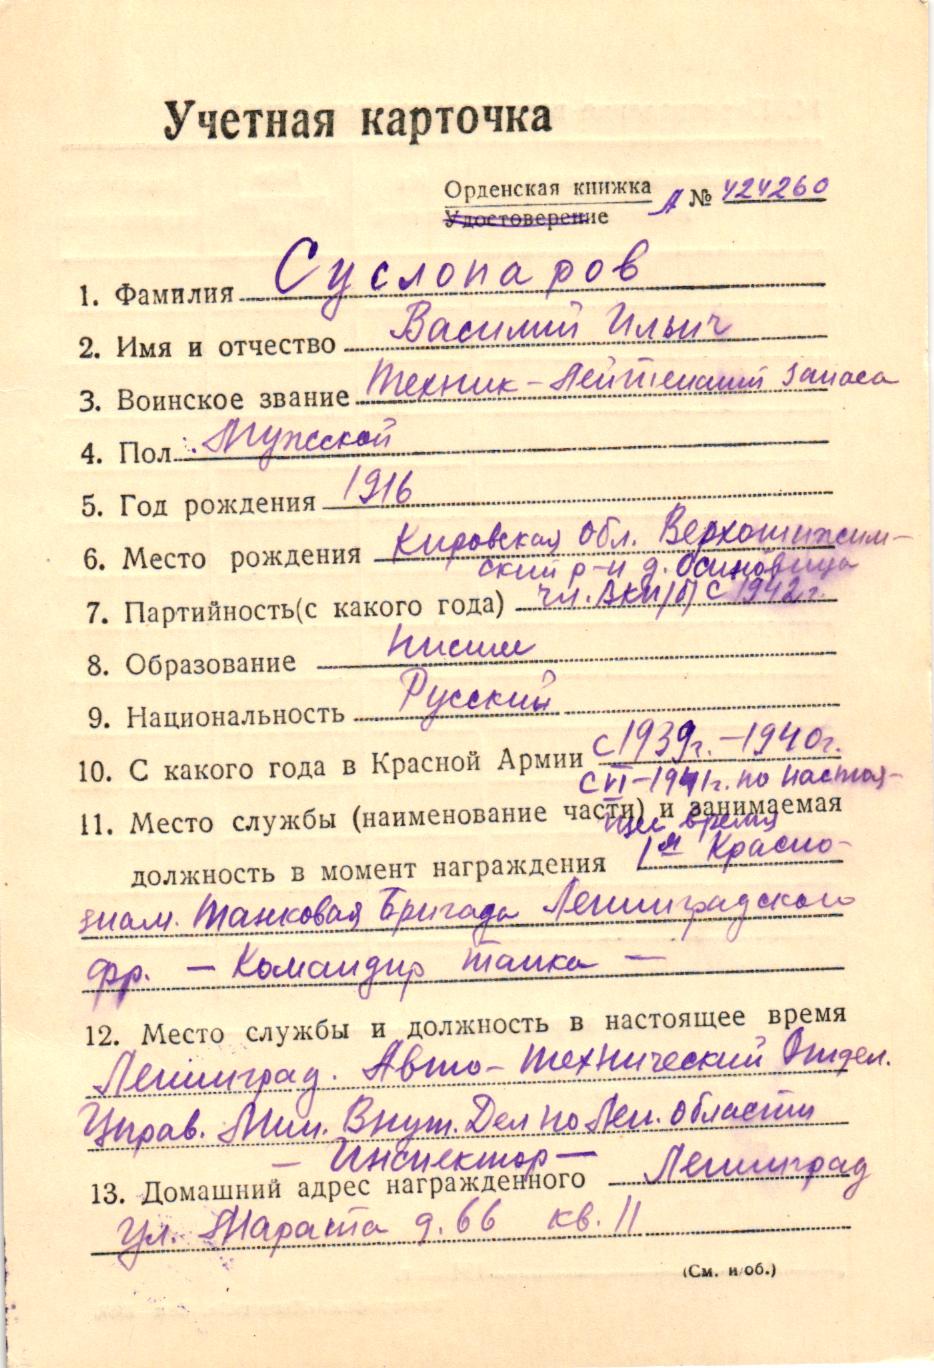 Учетная карточка
Орденская книжка
Удостоверение А № 424260
1. Фамилия Суслопаров
2. Имя и отчество Василий Ильич
3. Воинское звание Техник-Лейтенант запаса
4. Пол Мужской
5. Год рождения 1916
6. Место рождения Кировская обл. Верхошижем-
ский р-н д. Осиновица
7. Партийность(с какого года) чл. ВКП/б/ с 1942 г.
8. Образование Низшее
9. Национальность Русский
10. С какого года в Красной Армии с 1939 г. - 1940 г.
с VI-1941 г. по настоя-
щее время
11. Место службы (наименование части) и занимаемая
должность в момент награждения 1я Красно-
знам. Танковая Бригада Ленинградского
фр. — Командир танка —
12. Место службы и должность в настоящее время
Ленинград. Авто-технический Отдел.
Управ. Мин. Внут. Дел по Лен. области
— Инспектор —
13. Домашний адрес награжденного Ленинград
ул. Марата д. 66 кв. 11
(См. н/об.)